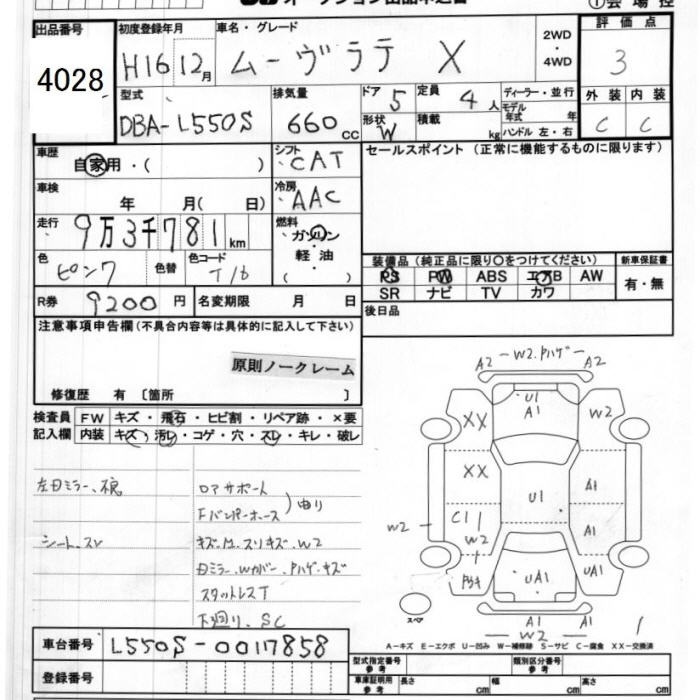 オークション出品申込書
①会場控
出品番号
4028
初度登録年月
H16 12月
車名・グレード
ムーヴラテ X
2WD
・
4WD
評価点
3
型式
DBA-L550S
排気量
660cc
ドア 5
定員 4人
ディーラー・並行
モデル年式 年
形状 W
積載 kg
ハンドル 左・右
外装 内装
C C
車歴
自家用・( )
シフト
CAT
セールスポイント(正常に機能するものに限ります)
車検
年 月( 日)
冷房
AAC
走行
9万3千781km
燃料
ガソリン
・
軽油
( )
色
ピンク
色替
色コード
T16
装備品(純正品に限り〇をつけてください)
新車保証書
PS PW ABS エアB AW
SR ナビ TV カワ
有・無
R券 9200円
名変期限 月 日
後日品
注意事項申告欄(不具合内容等は具体的に記入して下さい)
原則ノークレーム
修復歴 有〔箇所 〕
検査員記入欄
FW キズ・飛石・ヒビ割・リペア跡・×要
内装 キズ・汚レ・コゲ・穴・スレ・キレ・破レ
左日ミラー、不良
ロアサポート
Fバンパーホース
)曲り
シート、スレ
キズ、凹、スリキズ、W2
日ミラー、Wカバー、Pハゲ・キズ
スタットレスT
下廻り、SC
A2 W2.Pハゲ A2
U1
A1
XX
W2
XX
U1
A1
C1
W2
W2
A1
UA1
UA1
A1
A1
W2
スペア
A-キズ E-エクボ U-凹み W-補修跡 S-サビ C-腐食 XX-交換済
車台番号 L550S-0017858
登録番号
型式指定番号 参考
類別区分番号 参考
車庫証明用 参考
長さ cm
幅 cm
高さ cm